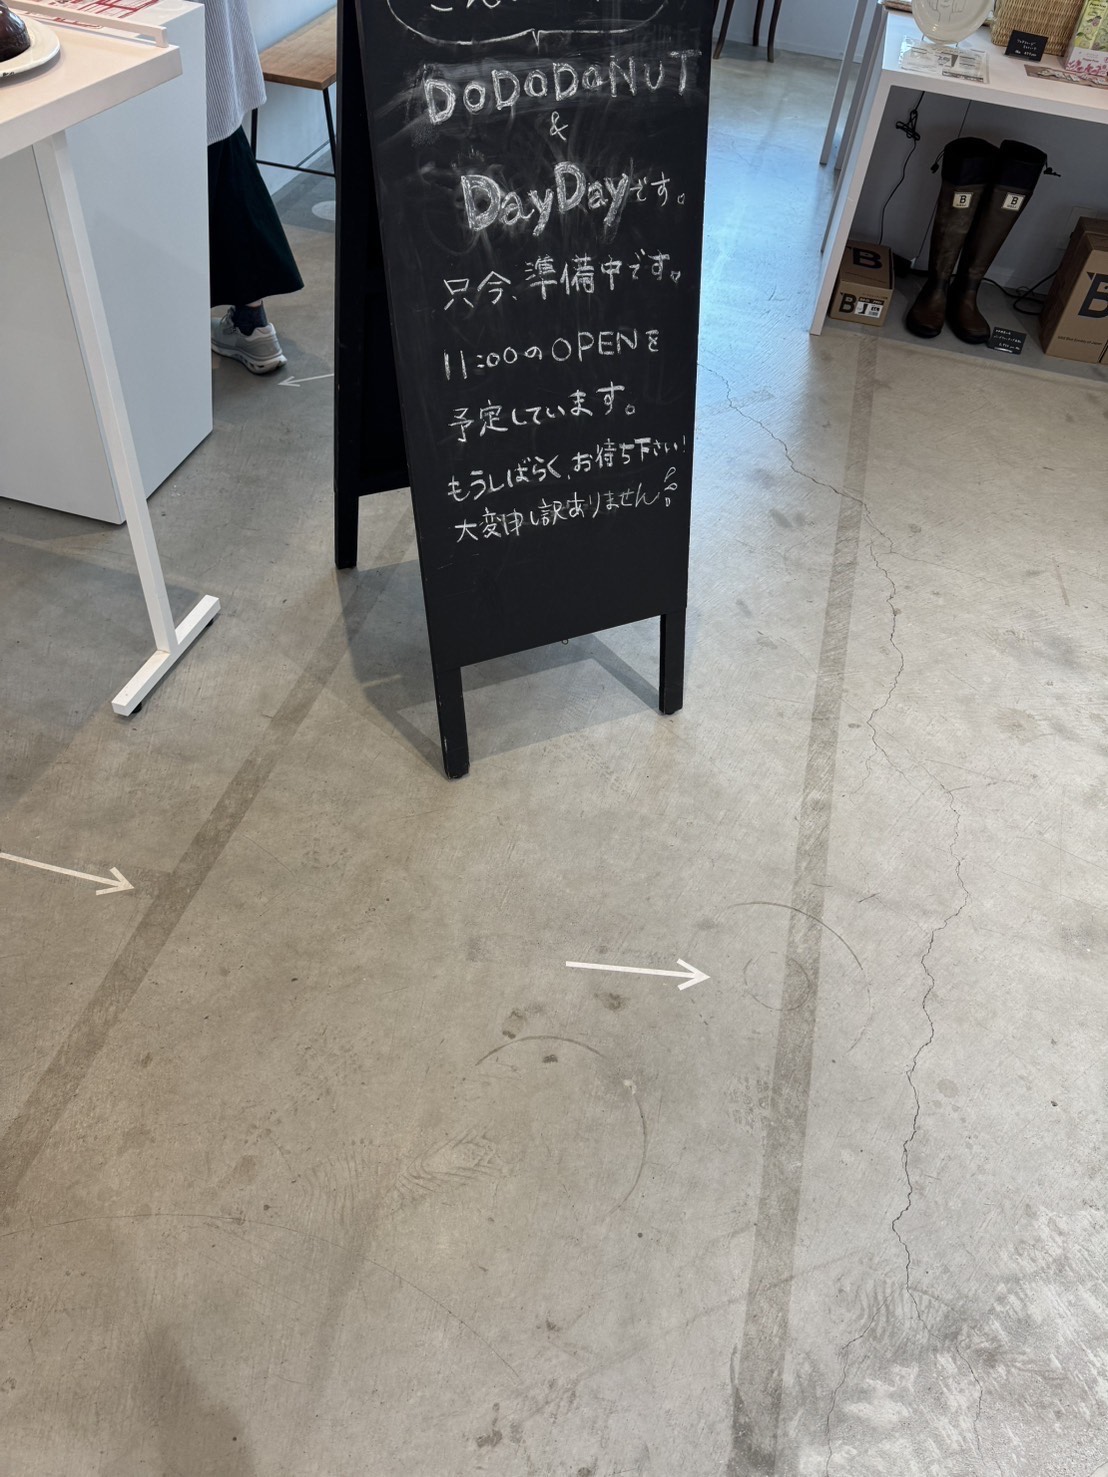 DODODONUT
&
DayDayです。
只今、準備中です。
11:00のOPENを
予定しています。
もうしばらく、お待ち下さい!
大変申し訳ありません
B
B
B
B